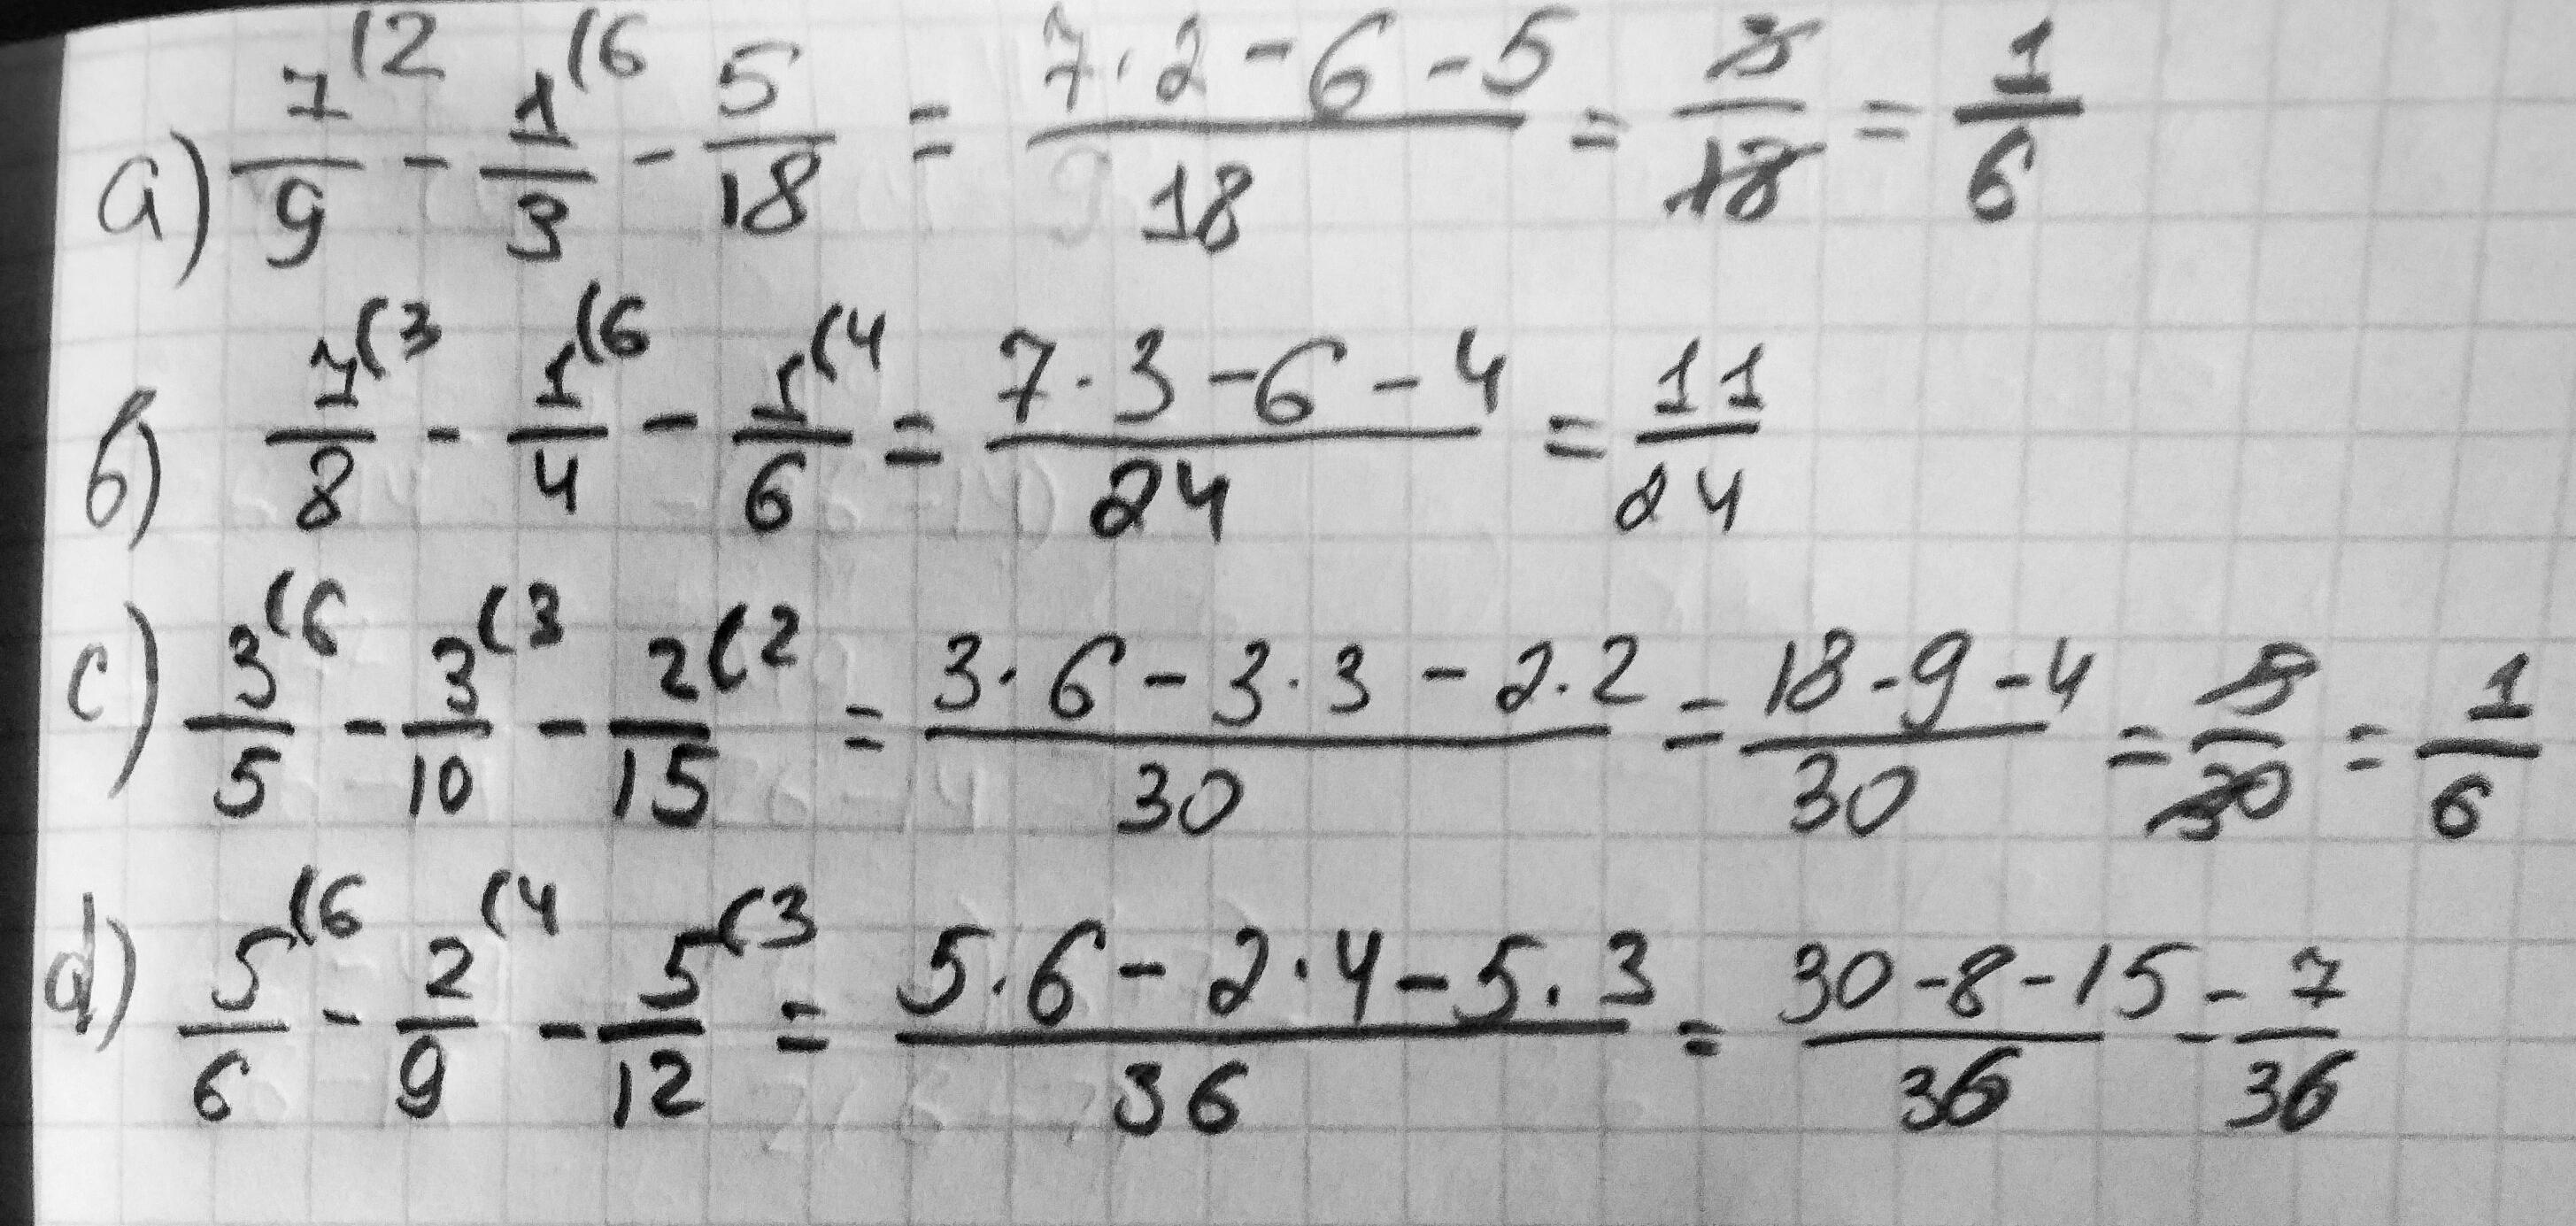 a) 7/9 (2 - 1/3 (6 - 5/18 = (7·2-6-5)/18 = 3/18 = 1/6
б) 7/8 (3 - 1/4 (6 - 1/6 (4 = (7·3-6-4)/24 = 11/24
c) 3/5 (6 - 3/10 (3 - 2/15 (2 = (3·6-3·3-2·2)/30 = (18-9-4)/30 = 5/30 = 1/6
d) 5/6 (6 - 2/9 (4 - 5/12 (3 = (5·6-2·4-5·3)/36 = (30-8-15)/36 = 7/36